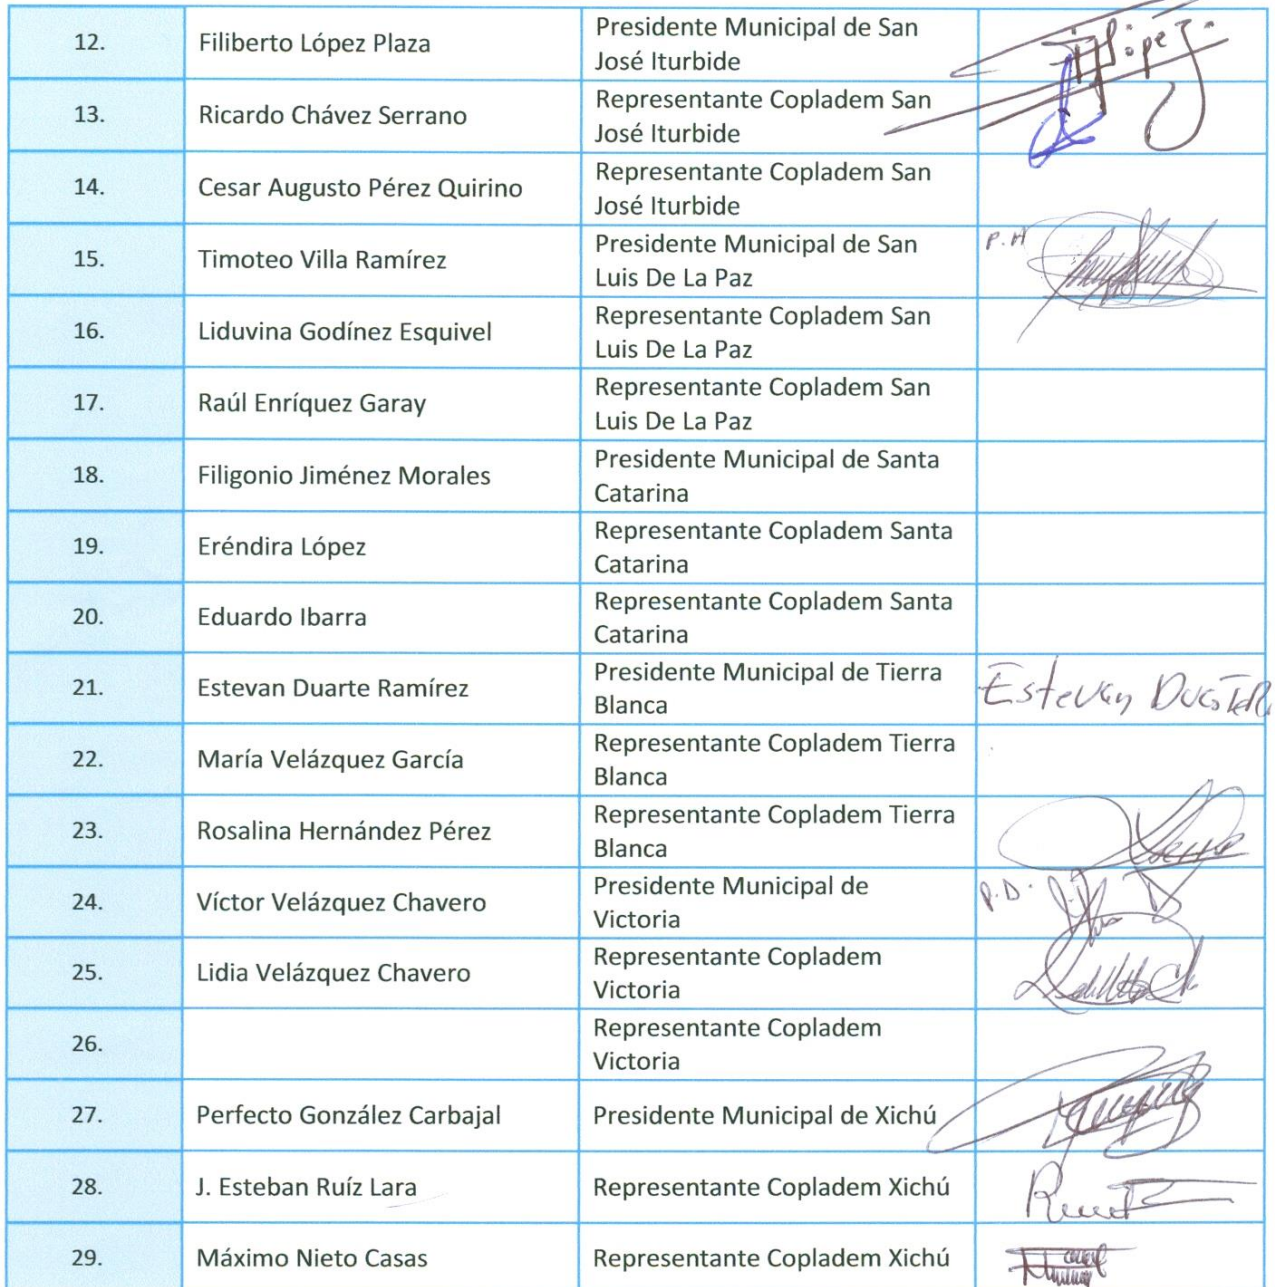 12. Filiberto López Plaza Presidente Municipal de San
José Iturbide
López
13. Ricardo Chávez Serrano Representante Copladem San
José Iturbide
14. Cesar Augusto Pérez Quirino Representante Copladem San
José Iturbide
15. Timoteo Villa Ramírez Presidente Municipal de San
Luis De La Paz
P.A
16. Liduvina Godínez Esquivel Representante Copladem San
Luis De La Paz
17. Raúl Enríquez Garay Representante Copladem San
Luis De La Paz
18. Filigonio Jiménez Morales Presidente Municipal de Santa
Catarina
19. Eréndira López Representante Copladem Santa
Catarina
20. Eduardo Ibarra Representante Copladem Santa
Catarina
21. Estevan Duarte Ramírez Presidente Municipal de Tierra
Blanca
Estevan Duarte R
22. María Velázquez García Representante Copladem Tierra
Blanca
23. Rosalina Hernández Pérez Representante Copladem Tierra
Blanca
24. Víctor Velázquez Chavero Presidente Municipal de
Victoria
P.D.
25. Lidia Velázquez Chavero Representante Copladem
Victoria
26. Representante Copladem
Victoria
27. Perfecto González Carbajal Presidente Municipal de Xichú
28. J. Esteban Ruíz Lara Representante Copladem Xichú
29. Máximo Nieto Casas Representante Copladem Xichú